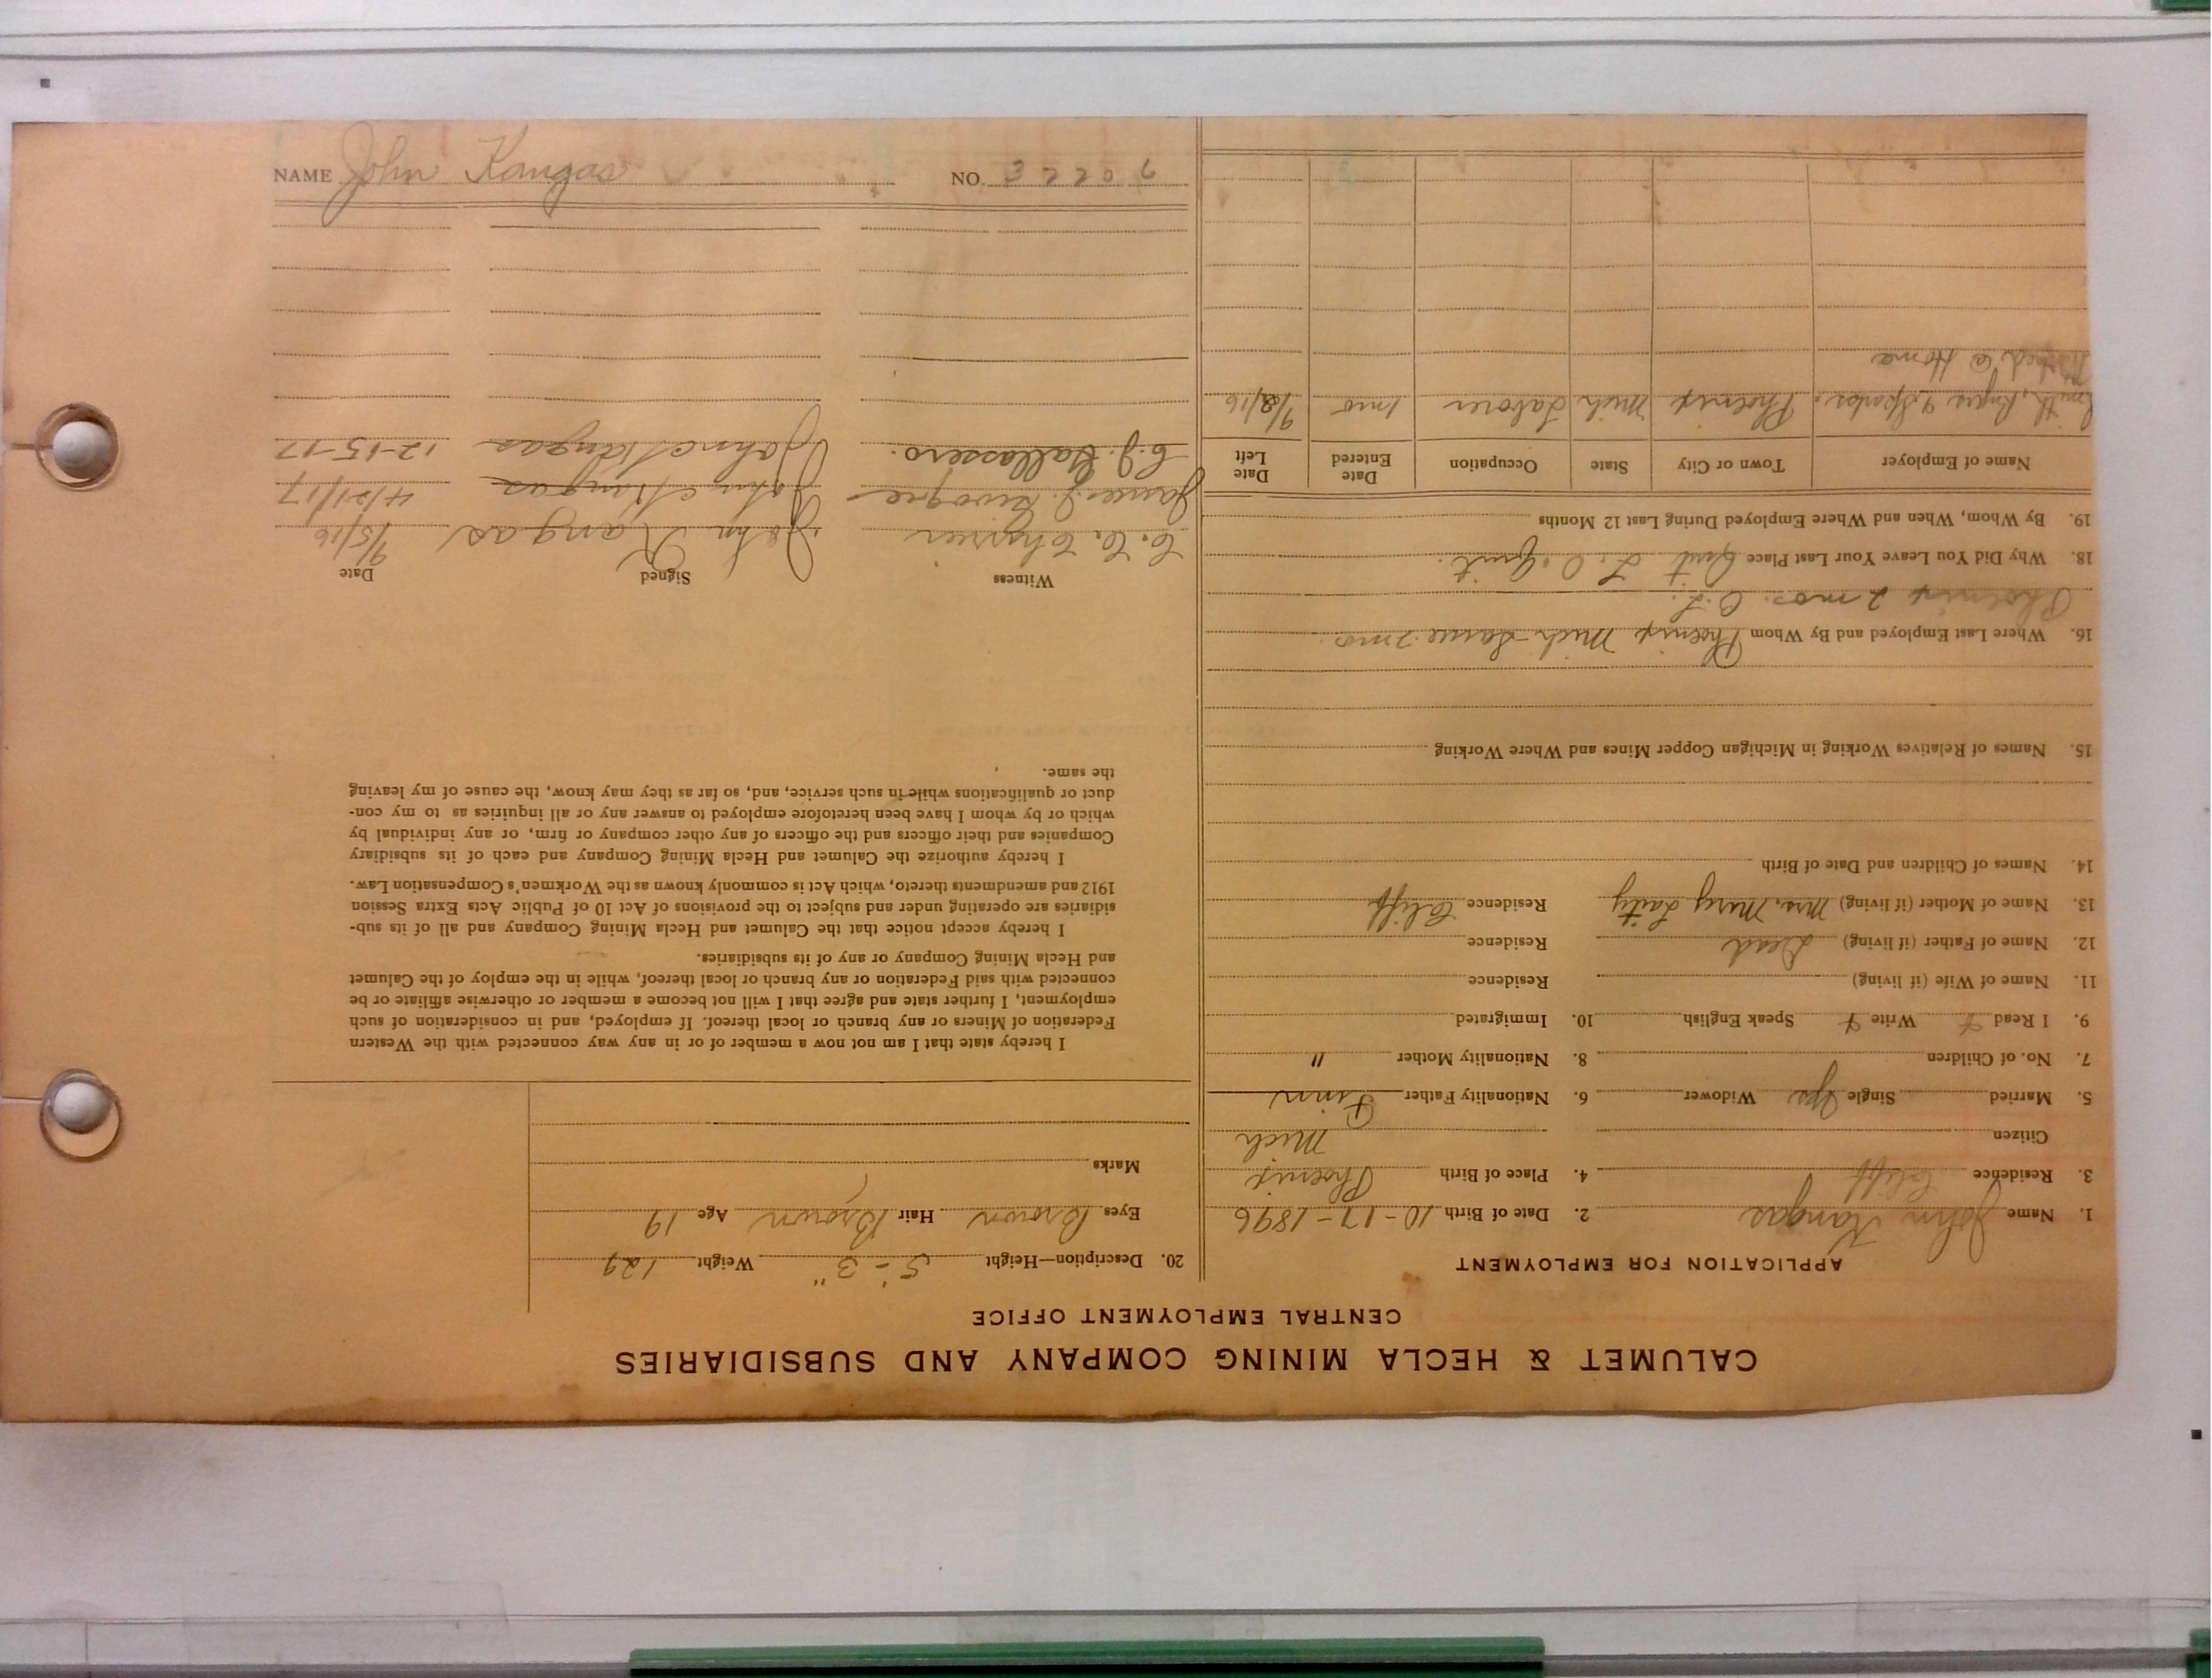 CALUMET & HECLA MINING COMPANY AND SUBSIDIARIES
CENTRAL EMPLOYMENT OFFICE
APPLICATION FOR EMPLOYMENT
1. Name John Kangas 2. Date of Birth 10-17-1896
3. Residence Cliff 4. Place of Birth Phoenix
Citizen Mich
5. Married Single Yes Widower 6. Nationality Father Finn
7. No. of Children 8. Nationality Mother "
9. I Read Write Speak English 10. Immigrated
11. Name of Wife (if living) Residence
12. Name of Father (if living) Dead Residence
13. Name of Mother (if living) Mrs. Mary Laity Residence Cliff
14. Names of Children and Date of Birth
15. Names of Relatives Working in Michigan Copper Mines and Where Working
16. Where Last Employed and By Whom Phoenix Mich Same 2 mo.
Phoenix 2 mos. C.L.
18. Why Did You Leave Your Last Place Quit L. O. Quit.
19. By Whom, When and Where Employed During Last 12 Months
Name of Employer Town or City State Occupation Date Entered Date Left
Smith, & Sparks. Phoenix Mich Laborer 1 mo 9/2/16
Worked @ Home
20. Description—Height 5'-3" Weight 129
Eyes Brown Hair Brown Age 19
Marks
I hereby state that I am not now a member of or in any way connected with the Western
Federation of Miners or any branch or local thereof. If employed, and in consideration of such
employment, I further state and agree that I will not become a member or otherwise affiliate or be
connected with said Federation or any branch or local thereof, while in the employ of the Calumet
and Hecla Mining Company or any of its subsidiaries.
I hereby accept notice that the Calumet and Hecla Mining Company and all of its sub-
sidiaries are operating under and subject to the provisions of Act 10 of Public Acts Extra Session
1912 and amendments thereto, which Act is commonly known as the Workmen's Compensation Law.
I hereby authorize the Calumet and Hecla Mining Company and each of its subsidiary
Companies and their officers and the officers of any other company or firm, or any individual by
which or by whom I have been heretofore employed to answer any or all inquiries as to my con-
duct or qualifications while in such service, and, so far as they may know, the cause of my leaving
the same.
Witness Signed Date
C. C. John Kangas 9/5/16
James J. John Kangas 4/21/17
C. J. John Kangas 12-15-17
NAME John Kangas NO. 32207